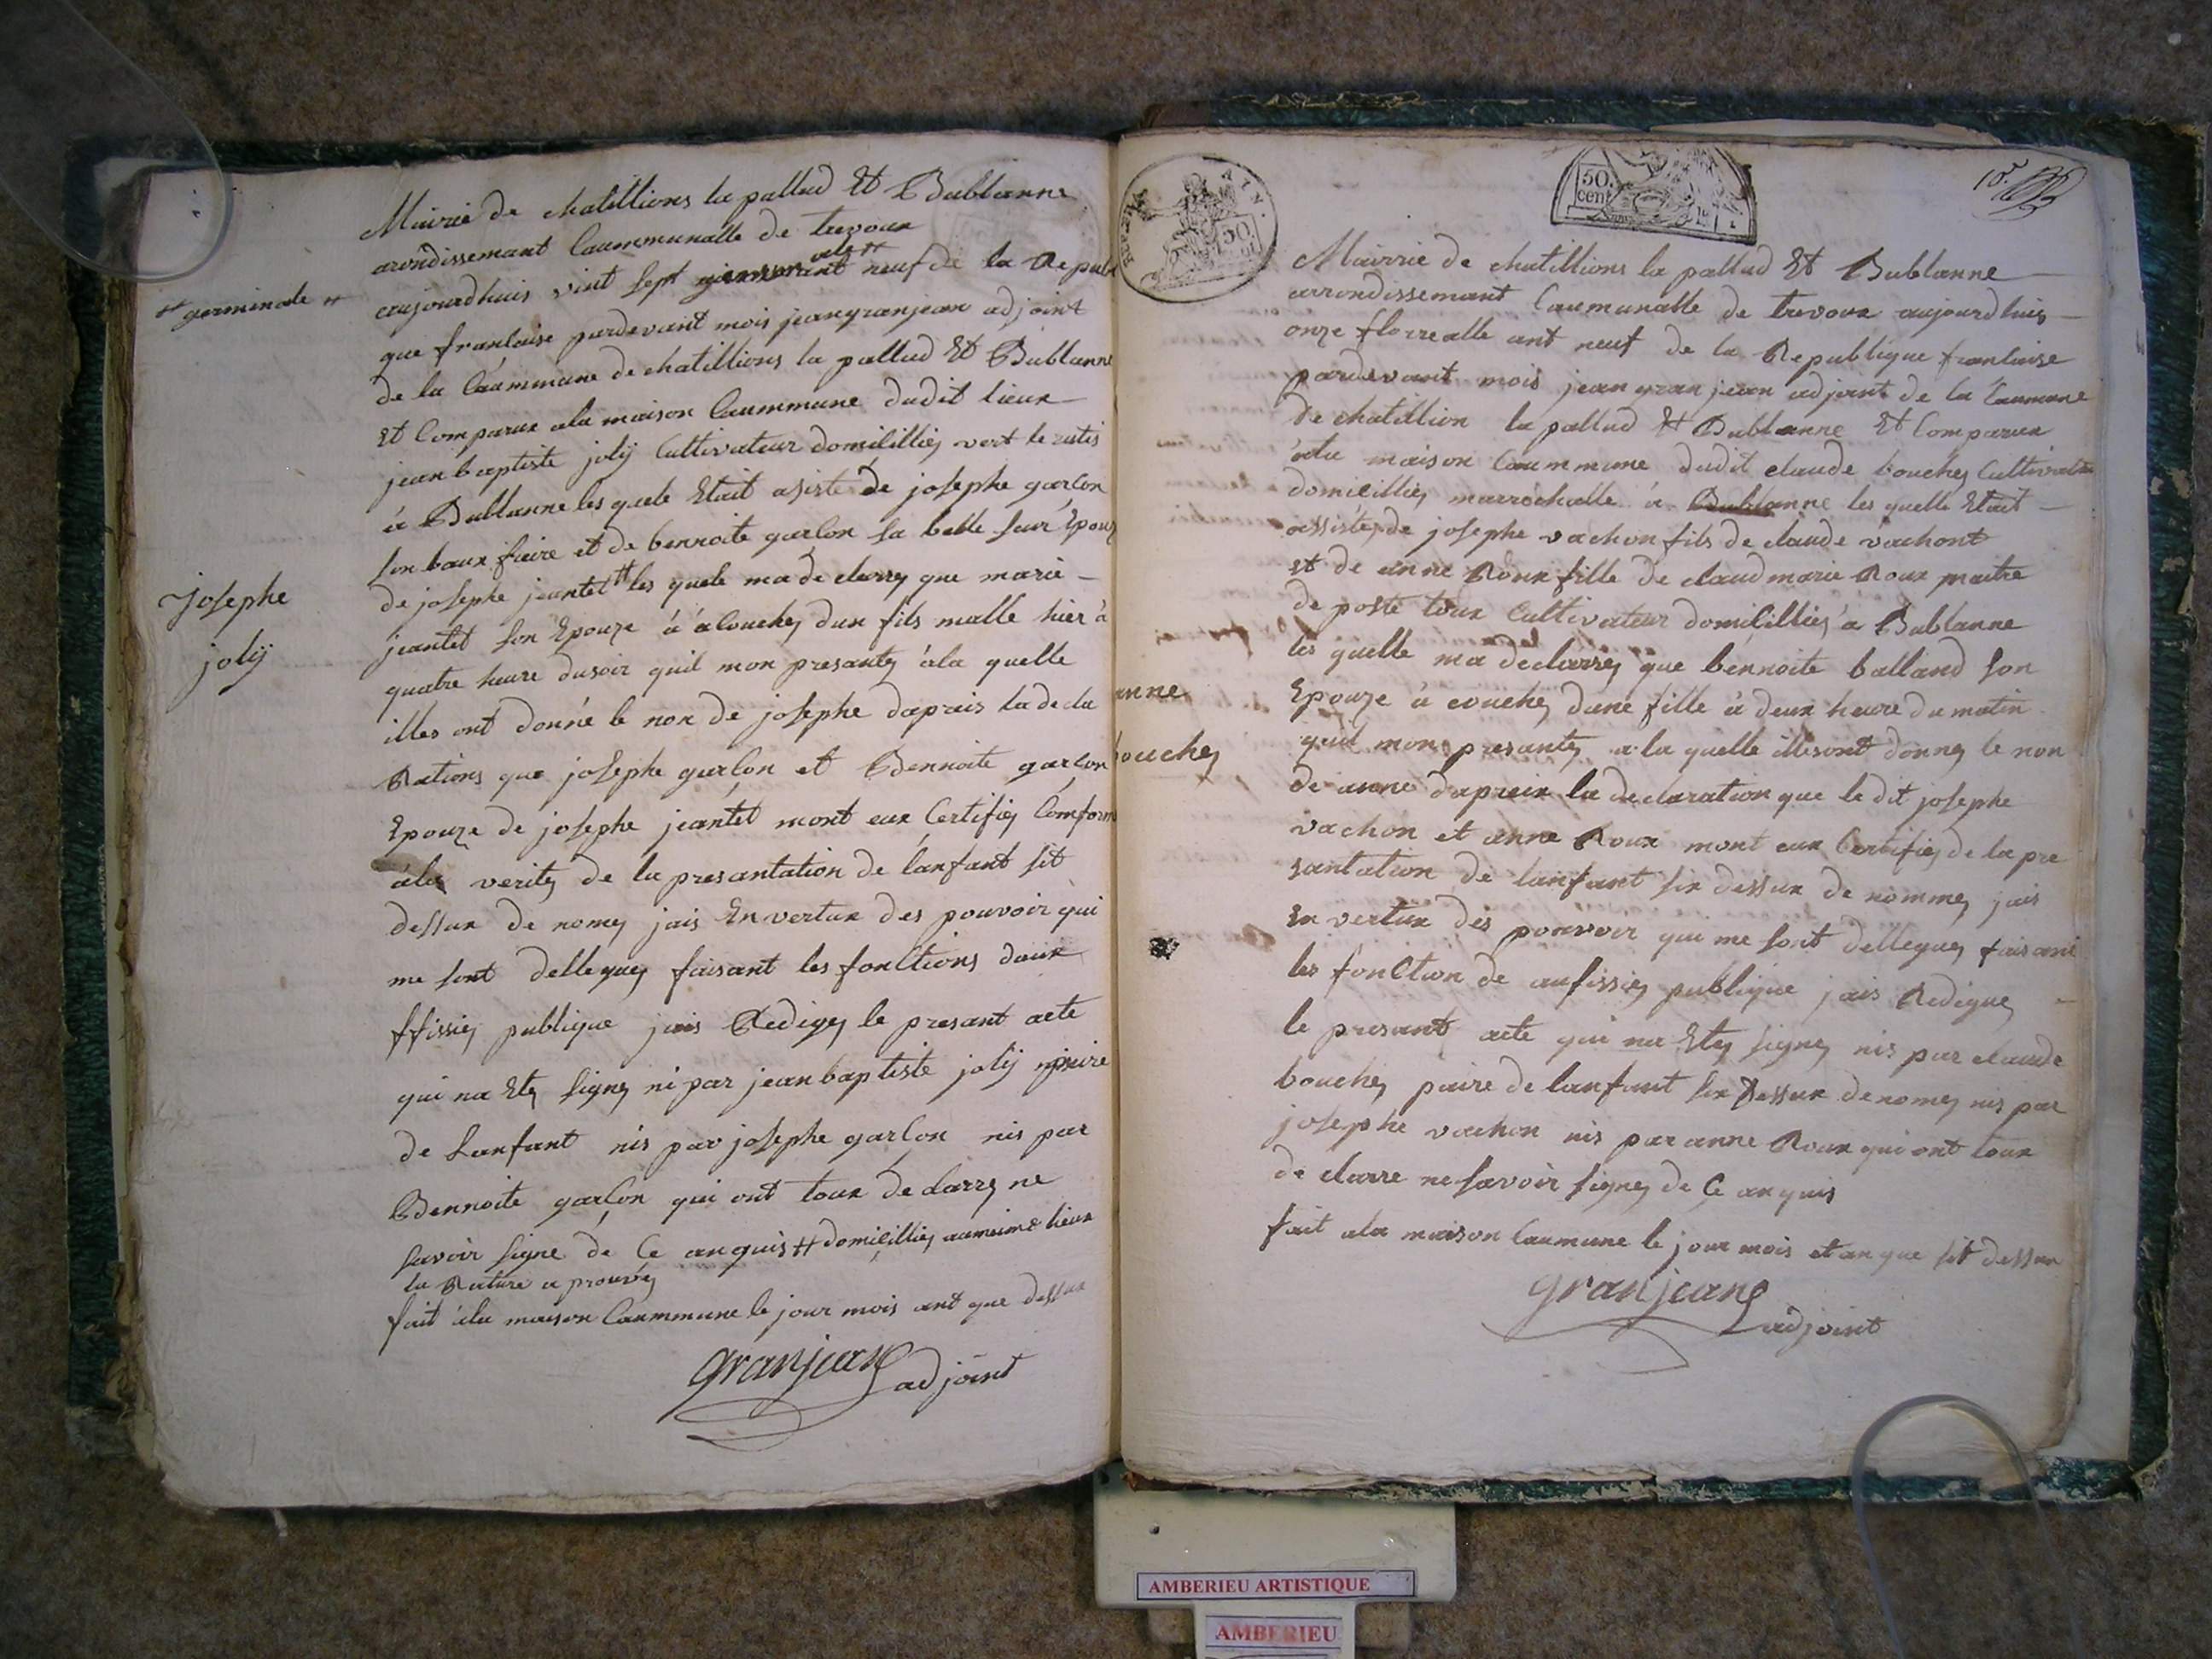 Mairie de chatillions la pallud Et Bublanne
arondissemant Caummunalle de trevoux
aujourdhuis vint sept ant neuf de la Republi
# germinale #
que franlaise pardevant mois jean granjean adjoint
de la Caummune de chatillions la pallud Et Bublanne
Et Comparux ala maison Caummune dudit lieux
jean baptiste jolÿ Cultivateur domicilliez vert le
à Bublanne les quele Etait asisté de josephe garlon
son baux fraire et de bennoite garlon sa belle sure Epouz
de josephe jeantet # les quele ma de clarrez que marie
Josephe
jolÿ
jeantet son Epouze à acouchez dun fils malle hier à
quatre heure dusoir quil mon presantez àla quelle
illes ont donné le non de josephe daprais la decla
Rations que josephe garlon et Bennoite garlon
Epouze de josephe jeantet mont eux Certifiez Comform
àla veritez de la presantation de lanfant sit
dessux de nomez jais En vertux des pouvoir qui
me sont delleguez faisant les fonctions daux
ffissiez publique jais Redigez le presant acte
qui na Etez signez ni par jean baptiste jolÿ paire
de Lanfant nis par josephe garlon nis par
Bennoite garlon qui ont toux de clarrez ne
savoir signe de Ce anquis # domicilliez aumeime lieux
la Rature a prouvéz
fait àla maison Caummune le jour mois ant que dessux
granjean adjoint
50. cent
10.e
Mairrie de chatillions la pallud Et Bublanne
arrondissemant Caumunalle de trevoux aujourdhuis
onze florrealle ant neuf de la Republique franlaise
pardevant mois jean granjean adjoint de la Caumune
de chatillion la pallud Et Bublanne Et Comparux
àla maison Caummune dudit claude bouchez Cultivateur
domicilliez marrechalle à Bublanne les quelle Etait
assistéz de josephe vachon fils de claude vachont
et de anne Roux fille de claud marie Roux maitre
de poste toux Cultivateur domicilliez à Bublanne
les quelle ma declarrez que bennoite balland son
anne
bouchez
Epouze à couchez dune fille à deux heure du matin
quil mon presantez a la quelle illesont donnez le non
de anne dapreix la declaration que le dit josephe
vachon et anne Roux mont eux Certifiez de la pre
santation de lanfant six dessux de nommez jais
En vertux des pouvoir qui me sont delleguez faisant
les fonction de aufissiez publique jais Rediguez
le presant acte qui na Etez signez nis par claude
bouchez paire de lanfant six dessux denomez nis par
josephe vachon nis par anne Roux qui ont toux
de clarre ne savoir signez de Ce anquis
fait ala maison Caumune le jour mois et an que sit dessux
granjean
adjoint
AMBERIEU ARTISTIQUE
AMBERIEU